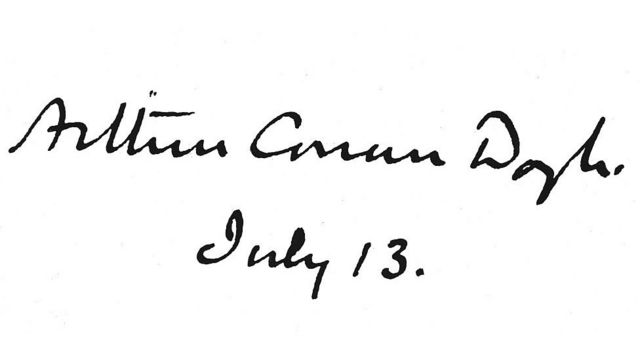 Arthur Conan Doyle.
July 13.